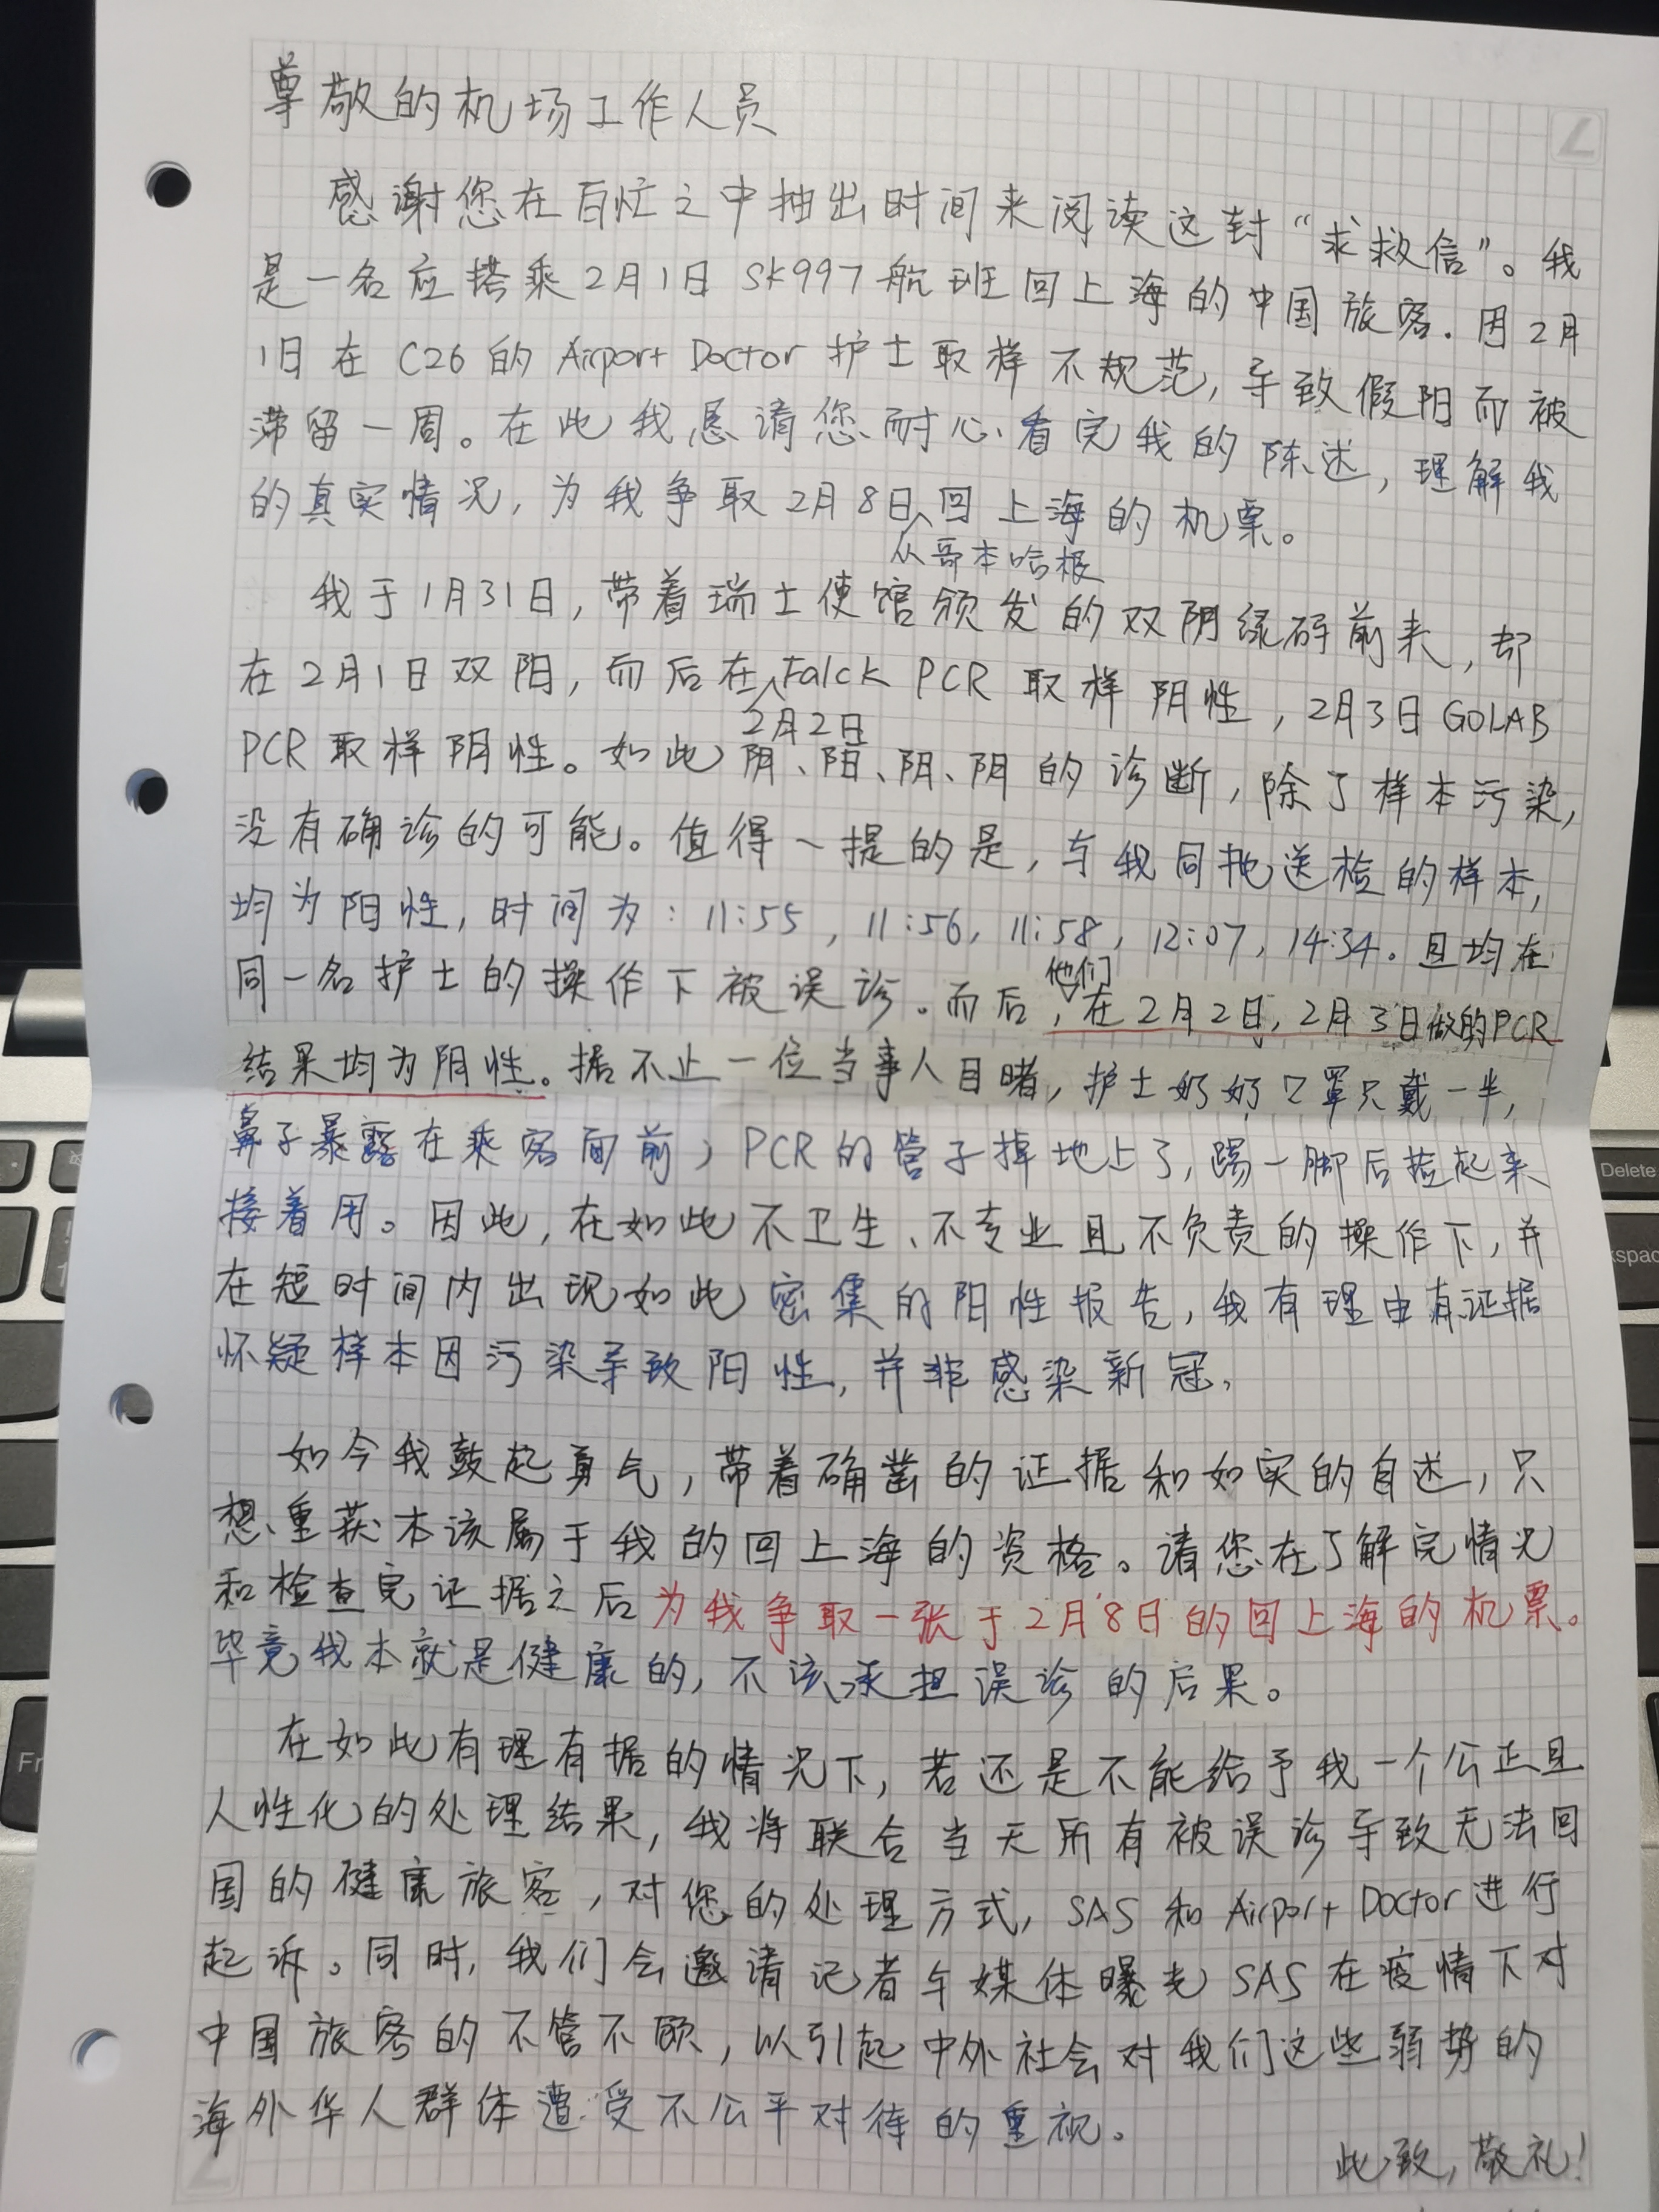 尊敬的机场工作人员
感谢您在百忙之中抽出时间来阅读这封“求救信”。我
是一名应搭乘2月1日 SK997航班回上海的中国旅客.因2月
1日在 C26 的 Airport Doctor 护士取样不规范,导致假阳而被
滞留一周。在此我恳请您耐心看完我的陈述,理解我
的真实情况,为我争取2月8日从哥本哈根回上海的机票。
我于1月31日,带着瑞士使馆颁发的双阴绿码前来,却
在2月1日双阳,而后在2月2日Falck PCR 取样阴性,2月3日GOLAB
PCR取样阴性。如此阴、阳、阴、阴的诊断,除了样本污染,
没有确诊的可能。值得一提的是,与我同批送检的样本,
均为阳性,时间为:11:55,11:56,11:58,12:07,14:34。且均在
同一名护士的操作下被误诊。而后他们,在2月2日,2月3日做的PCR
结果均为阴性。据不止一位当事人目睹,护士奶奶口罩只戴一半,
鼻子暴露在乘客面前,PCR的管子掉地上了,踢一脚后捡起来
接着用。因此,在如此不卫生、不专业且不负责的操作下,并
在短时间内出现如此密集的阳性报告,我有理由有证据
怀疑样本因污染导致阳性,并非感染新冠,
如今我鼓起勇气,带着确凿的证据和如实的自述,只
想重获本该属于我的回上海的资格。请您在了解完情况
和检查完证据之后为我争取一张于2月8日的回上海的机票。
毕竟我本就是健康的,不该承担误诊的后果。
在如此有理有据的情况下,若还是不能给予我一个公正且
人性化的处理结果,我将联合当天所有被误诊导致无法回
国的健康旅客,对您的处理方式,SAS 和 Airport Doctor进行
起诉。同时,我们会邀请记者与媒体曝光 SAS 在疫情下对
中国旅客的不管不顾,以引起中外社会对我们这些弱势的
海外华人群体遭受不公平对待的重视。
此致,敬礼!
Delete
Fr